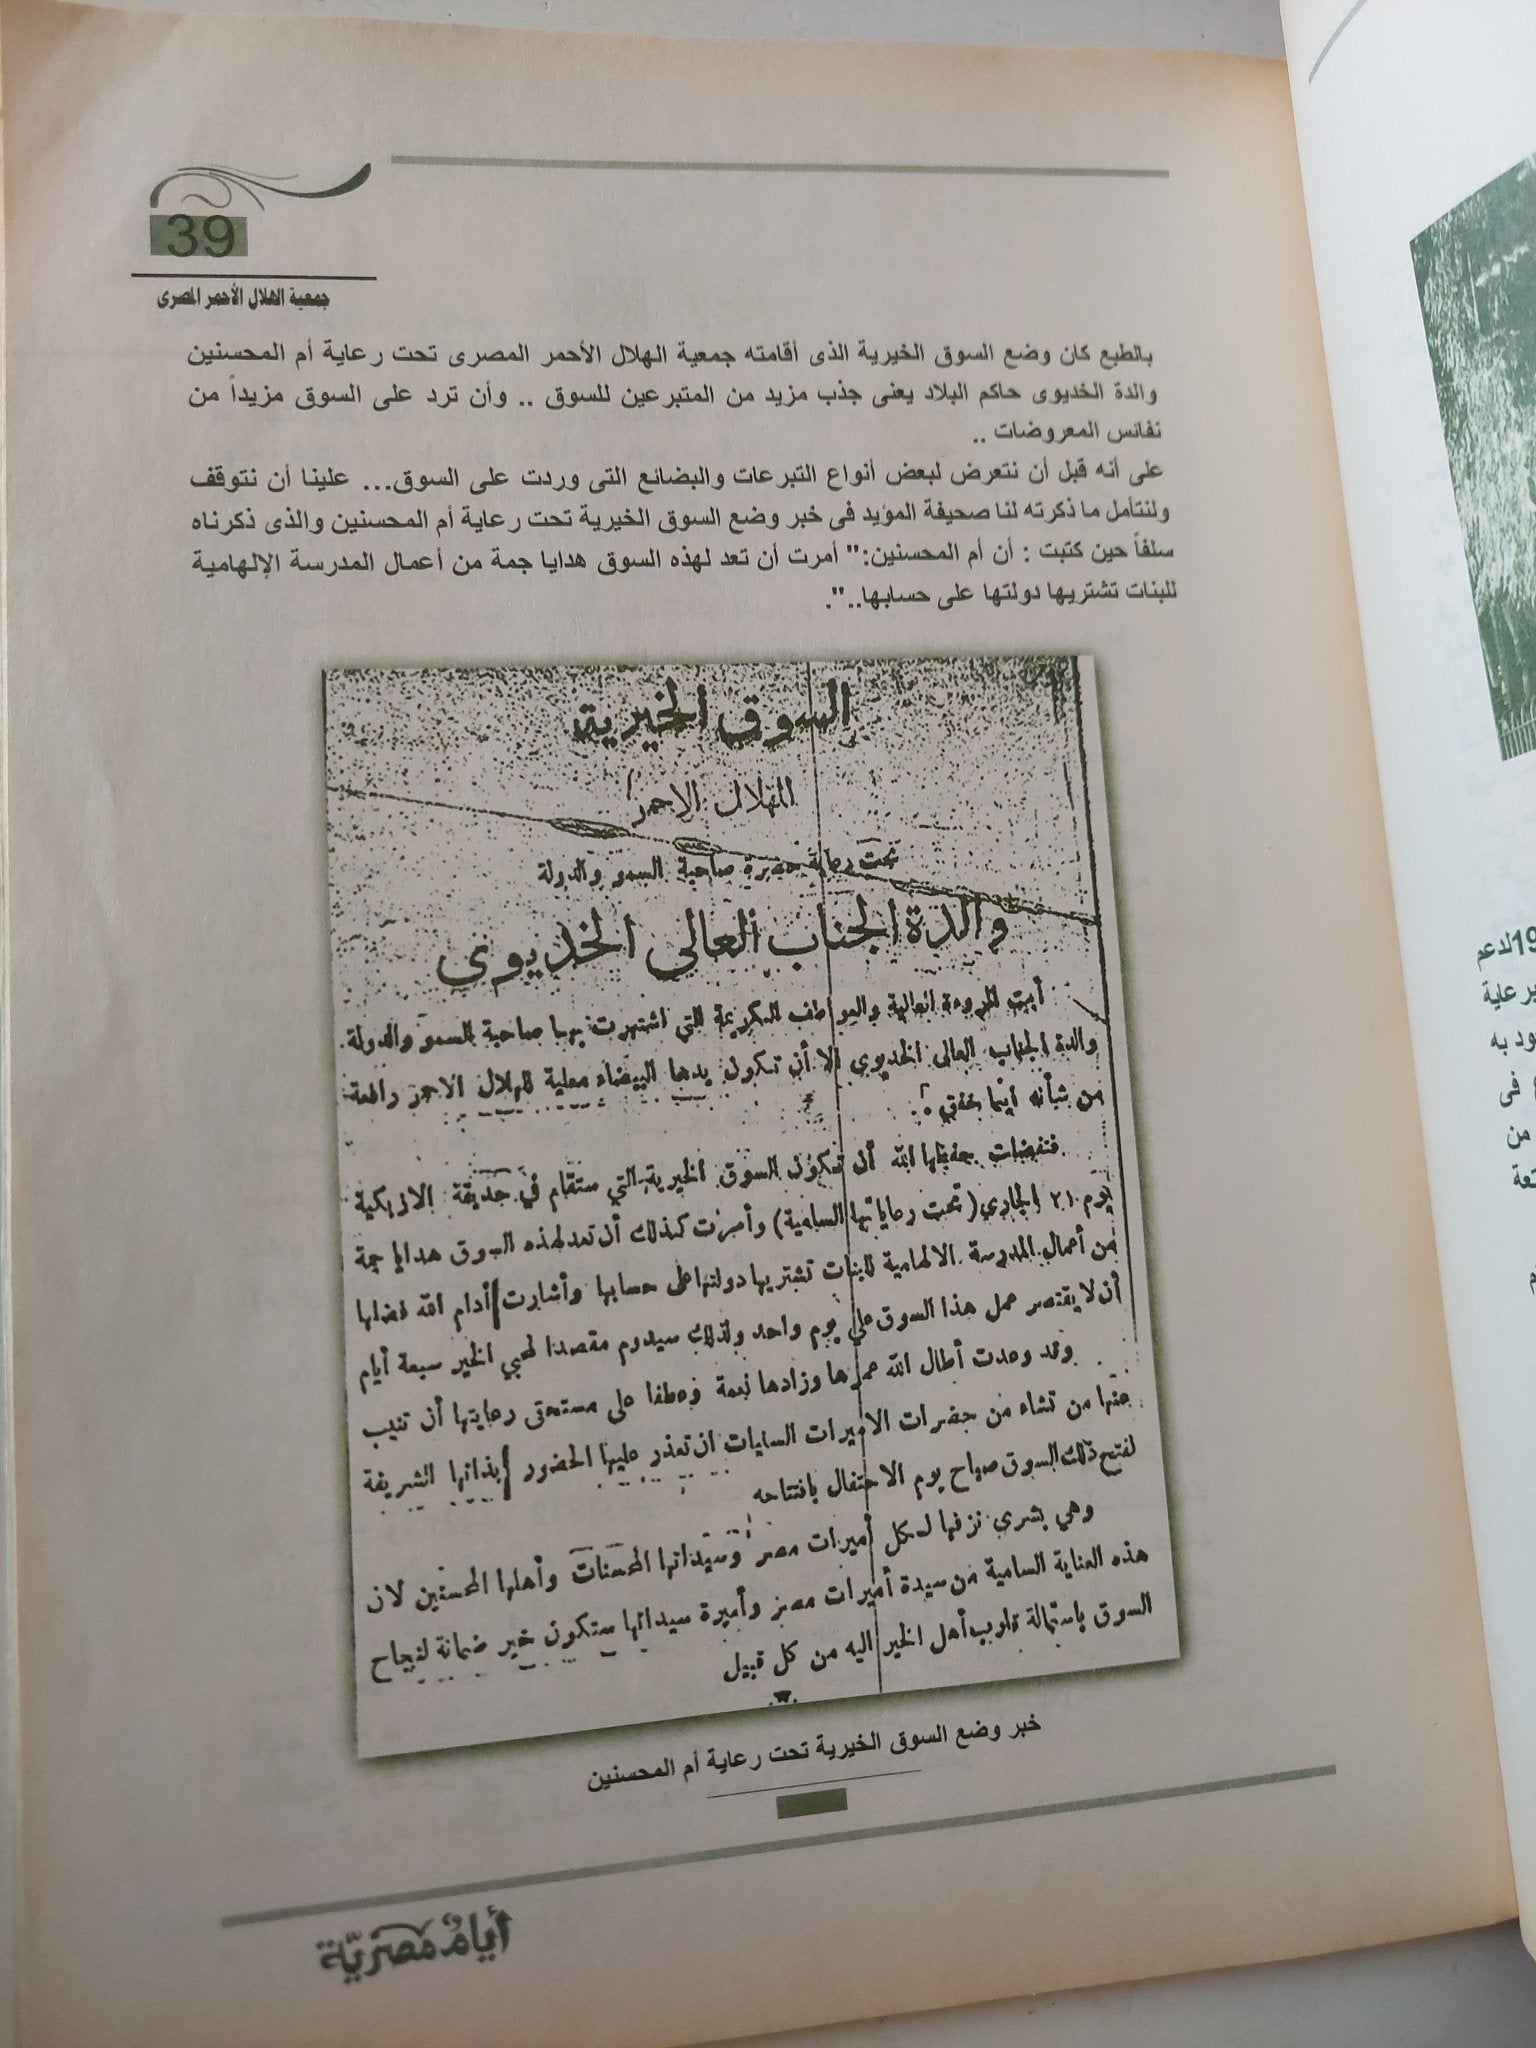 39
جمعية الهلال الأحمر المصرى
بالطبع كان وضع السوق الخيرية الذى أقامته جمعية الهلال الأحمر المصرى تحت رعاية أم المحسنين
والدة الخديوى حاكم البلاد يعنى جذب مزيد من المتبرعين للسوق .. وأن ترد على السوق مزيداً من
نفائس المعروضات ..
على أنه قبل أن نتعرض لبعض أنواع التبرعات والبضائع التى وردت على السوق... علينا أن نتوقف
ولنتأمل ما ذكرته لنا صحيفة المؤيد فى خبر وضع السوق الخيرية تحت رعاية أم المحسنين والذى ذكرناه
سلفاً حين كتبت : أن أم المحسنين:" أمرت أن تعد لهذه السوق هدايا جمة من أعمال المدرسة الإلهامية
للبنات تشتريها دولتها على حسابها..".
السوق الخيرية
الهلال الاحمر
تحت رعاية حضرة صاحبة السمو والدولة
والدة الجناب العالى الخديوى
أبت المروءة العالية والعواطف الكريمة التي اشتهرت بها صاحبة السمو والدولة
والدة الجناب العالى الخديوي الا أن تكون يدها البيضاء معلية للهلال الاحمر رافعة
من شأنه أينما خفق
فتفضلت حفظها الله أن تكون السوق الخيرية التي ستقام في حديقة الازبكية
يوم ٢١ الجاري (تحت رعايتها السامية) وأمرت كذلك أن تعد لهذه السوق هدايا جمة
من أعمال المدرسة الالهامية للبنات تشتريها دولتها على حسابها وأشارت أدام الله فضلها
أن لا يقتصر عمل هذا السوق على يوم واحد ولذلك سيدوم مقصدا لمحبي الخير سبعة أيام
وقد وعدت أطال الله عمرها وزادها نعمة وعطفا على مستحقى رعايتها أن تنيب
عنها من تشاء من حضرات الاميرات السايات ان تعذر عليها الحضور بذاتها الشريفة
لفتح ذلك السوق صباح يوم الاحتفال بافتتاحه
وهي بشرى نزفها لكل أميرات مصر وسيداتها المحسنات وأهلها المحسنين لان
هذه العناية السامية من سيدة أميرات مصر وأميرة سيداتها ستكون خير ضمانة لنجاح
السوق باستمالة قلوب أهل الخير اليه من كل قبيل
خبر وضع السوق الخيرية تحت رعاية أم المحسنين
أيام مصرية
لدعم
ود به
فى
من